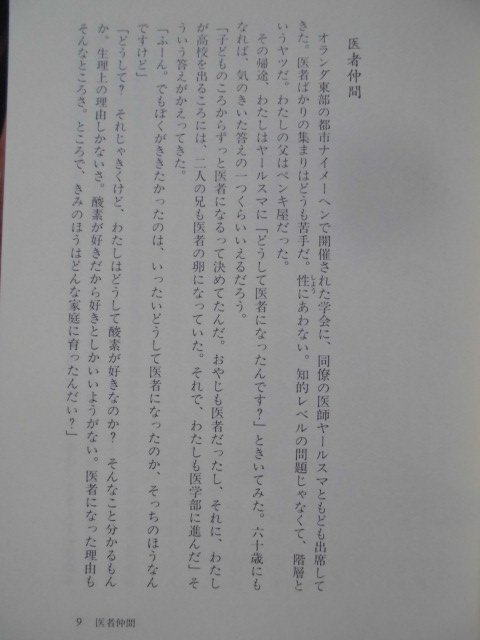 医者仲間
オランダ東部の都市ナイメーヘンで開催された学会に、同僚の医師ヤールスマともども出席して
きた。医者ばかりの集まりはどうも苦手だ。性にあわない。知的レベルの問題じゃなくて、階層と
しょう
いうヤツだ。わたしの父はペンキ屋だった。
その帰途、わたしはヤールスマに「どうして医者になったんです?」ときいてみた。六十歳にも
なれば、気のきいた答えの一つくらいいえるだろう。
「子どものころからずっと医者になるって決めてたんだ。おやじも医者だったし、それに、わたし
が高校を出るころには、二人の兄も医者の卵になっていた。それで、わたしも医学部に進んだ」そ
ういう答えがかえってきた。
「ふーん。でもぼくがききたかったのは、いったいどうして医者になったのか、そっちのほうなん
ですけど」
「どうして? それじゃきくけど、わたしはどうして酸素が好きなのか? そんなこと分かるもん
か。生理上の理由しかないさ。酸素が好きだから好きとしかいいようがない。医者になった理由も
そんなところさ。ところで、きみのほうはどんな家庭に育ったんだい?」
9 医者仲間